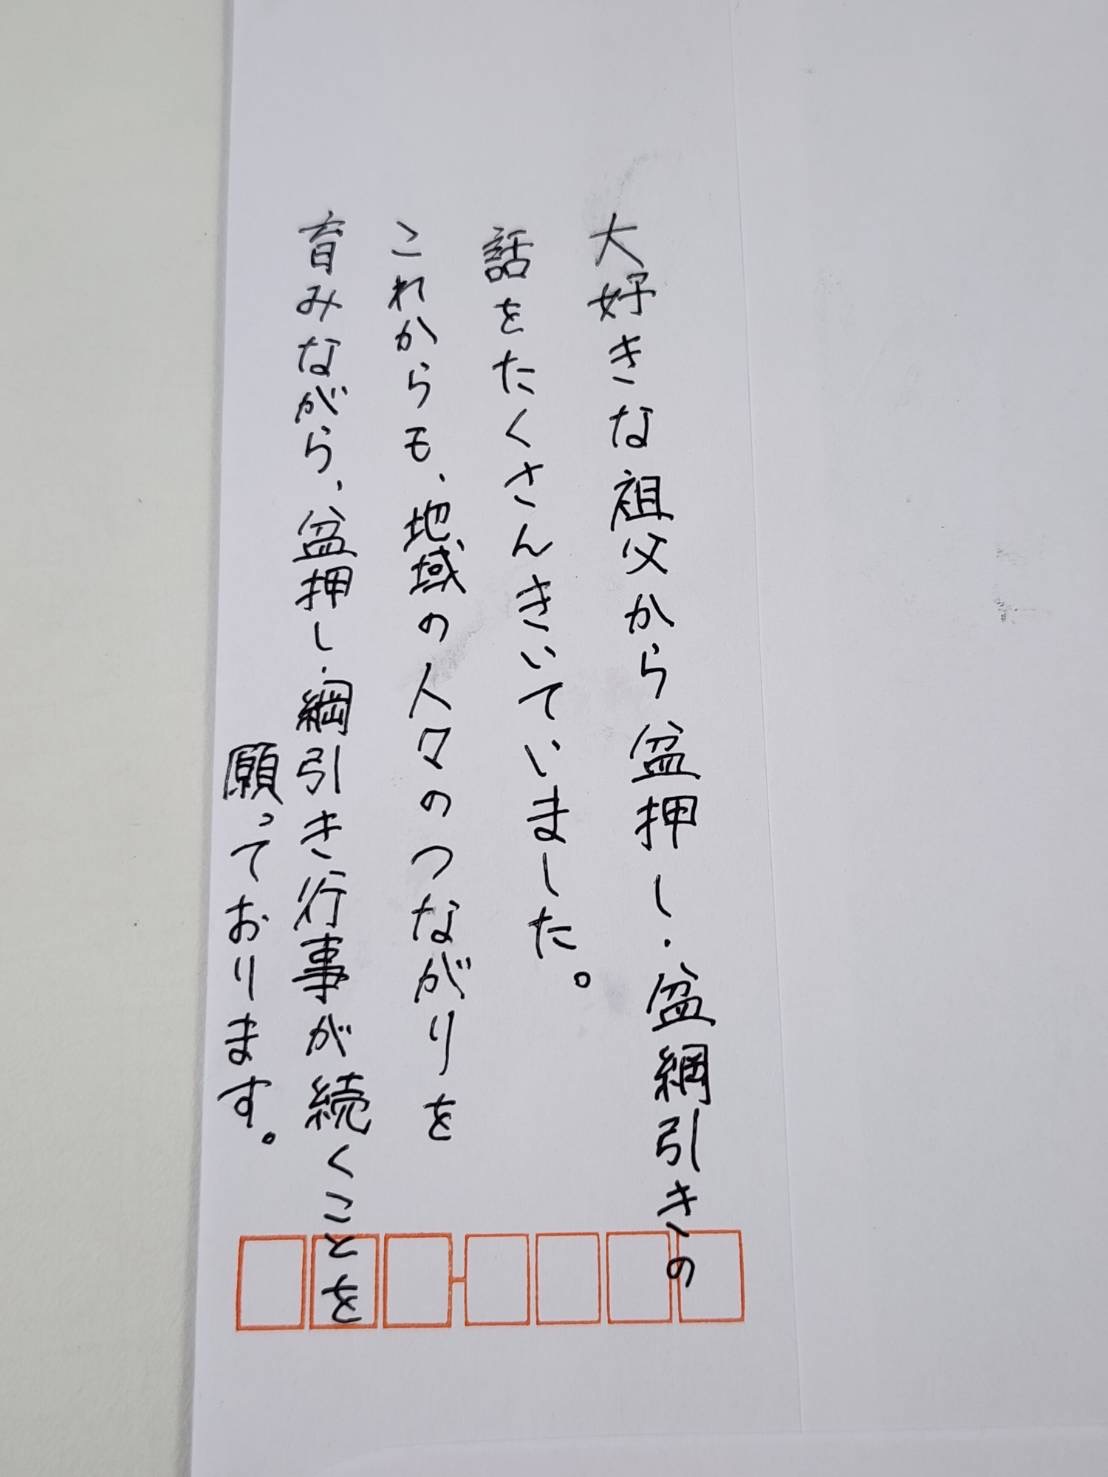 大好きな祖父から盆押し・盆綱引きの
話をたくさんきいていました。
これからも、地域の人々のつながりを
育みながら、盆押し・綱引き行事が続くことを
願っております。